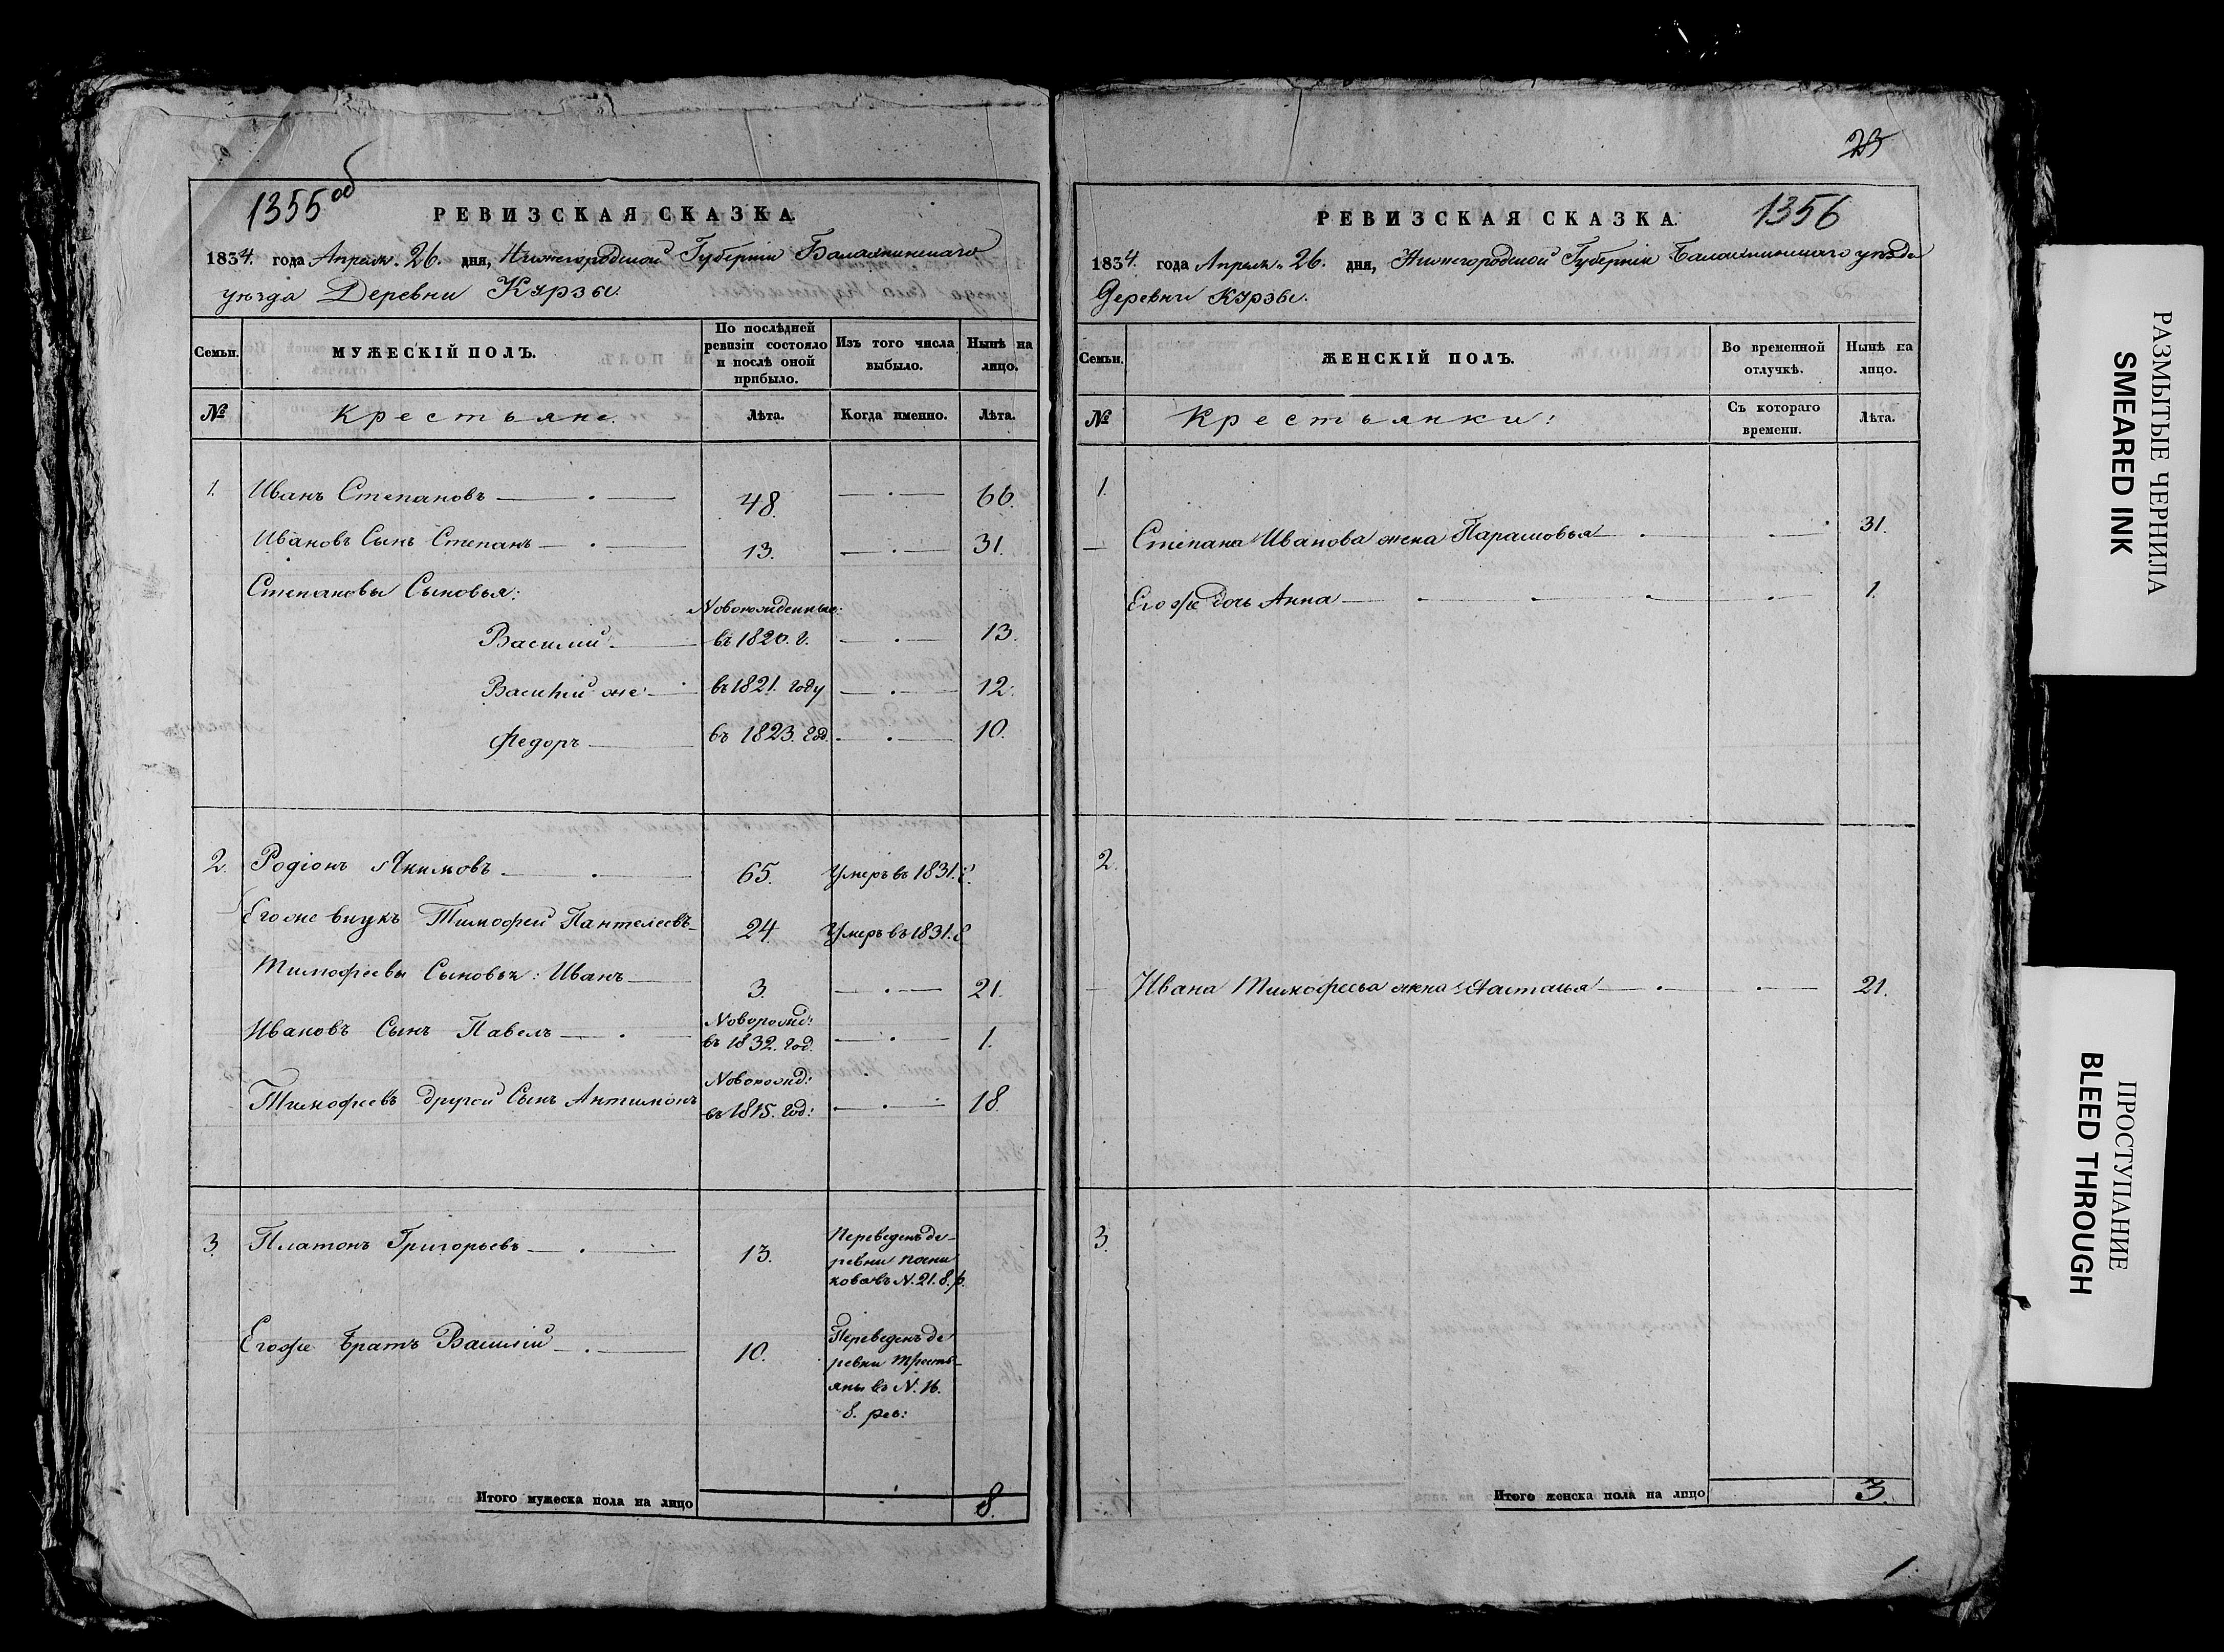 1355 об
РЕВИЗСКАЯ СКАЗКА.
1834. года Апреля. 26. дня, Нижегородской Губерніи Балахнинскаго
уезда Деревни Курзы.
Семьи. МУЖЕСКІЙ ПОЛЪ. По послѣдней ревизіи состояло и послѣ оной прибыло. Изъ того числа выбыло. Нынѣ на лицо.
№ Крестьяне. Лѣта. Когда именно. Лѣта.
1. Иванъ Степановъ 48. 66.
Ивановъ Сынъ Степанъ 13. 31.
Степановы Сыновья:
Новорожденные:
Василий въ 1820. г. 13.
Василий же въ 1821. году 12.
Федоръ въ 1823. год. 10.
2. Родіонъ Якимовъ 65. Умеръ въ 1831. г.
Егоже внукъ Тимофей Пантелеевъ 24. Умеръ въ 1831. г
Тимофеевы Сыновья: Иванъ 3. 21.
Ивановъ Сынъ Павелъ Новорожд: въ 1832. год. 1.
Тимофеевъ другой Сынъ Антимонъ Новорожд: въ 1815. год: 18.
3. Платонъ Григорьевъ 13. Переведенъ де-
ревни
въ N. 21. 8. р.
Егоже братъ Василій 10. Переведенъ де
ревни
въ N. 16.
8. рев:
Итого мужеска пола на лицо 8.
23
РЕВИЗСКАЯ СКАЗКА. 1356
1834. года Апреля. 26. дня, Нижегородской Губерніи Балахнинскаго уезда
Деревни Курзы.
Семьи. ЖЕНСКІЙ ПОЛЪ. Во временной отлучкѣ. Нынѣ на лицо.
№ Крестьянки: Съ котораго времени. Лѣта.
1.
Степана Иванова жена Парасковья 31.
Егоже дочь Анна 1.
2.
Ивана Тимофеева жена Настасья 21.
3.
Итого женска пола на лицо 3.
РАЗМЫТЫЕ ЧЕРНИЛА
SMEARED INK
ПРОСТУПАНИЕ
BLEED THROUGH